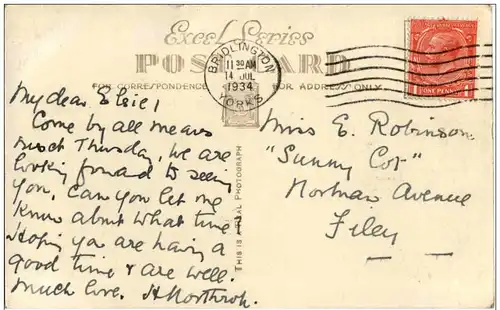 Excel Series
POSTCARD
FOR CORRESPONDENCE
FOR ADDRESS ONLY
BRIDLINGTON
11 30 AM
14 JUL
1934
YORKS
ONE PENNY
THIS IS A REAL PHOTOGRAPH
My dear Elsie,
Come by all means
next Thursday, we are
looking forward to seeing
you. Can you let me
know about what time.
Hoping you are having a
good time & are well.
Much love. H Northrop.
Miss E. Robinson
"Sunny Cot"
Norman Avenue
Filey